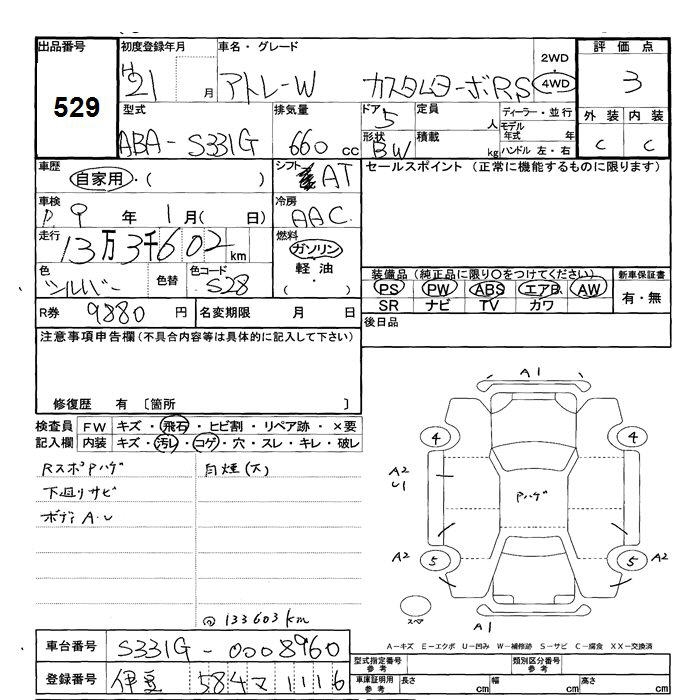 出品番号
529
初度登録年月
H21 月
車名・グレード
アトレーW カスタムターボRS
2WD
4WD
評価点
3
型式
ABA-S331G
排気量
660 cc
ドア
5
形状
BW
定員
人
積載
kg
ディーラー・並行
モデル年式 年
ハンドル 左・右
外装 内装
C C
車歴
自家用・( )
シフト
AT
セールスポイント (正常に機能するものに限ります)
車検
9年 1月( 日)
冷房
AAC
走行
13万3千602km
燃料
ガソリン
軽油
( ・ )
色
シルバー
色替
色コード
S28
装備品 (純正品に限り○をつけてください)
PS PW ABS エアB AW
SR ナビ TV カワ
新車保証書
有・無
R券 9880 円
名変期限 月 日
後日品
注意事項申告欄(不具合内容等は具体的に記入して下さい)
修復歴 有 〔箇所 〕
検査員記入欄
FW キズ・飛石・ヒビ割・リペア跡・×要
内装 キズ・汚レ・コゲ・穴・スレ・キレ・破レ
RスポPハゲ
下廻りサビ
ボディA.U
@133603km
A1
4 4
A2
U1
Pハゲ
A2 5 5 A2
スペア
A1
A-キズ E-エクボ U-凹み W-補修跡 S-サビ C-腐食 XX-交換済
車台番号 S331G-0008960
登録番号 伊豆 584 マ 1116
型式指定番号 参考
類別区分番号 参考
車庫証明用 参考
長さ cm 幅 cm 高さ cm